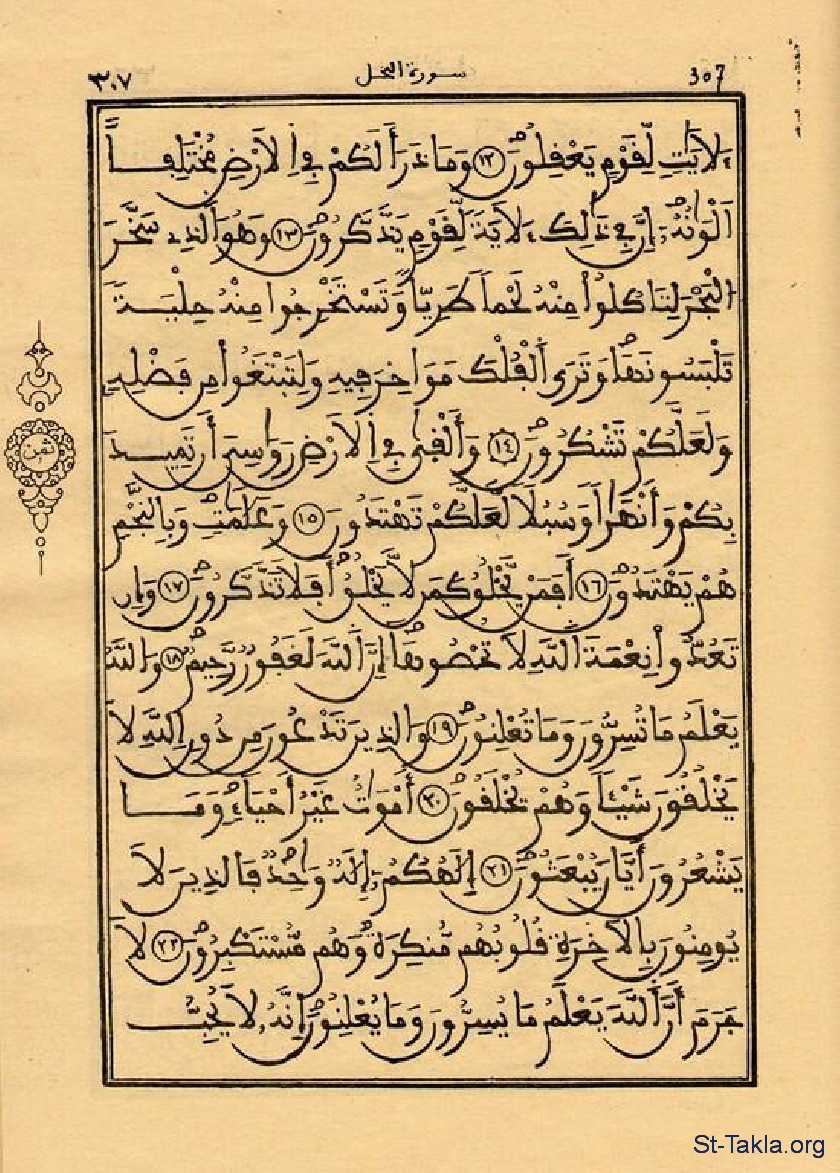 ٣٠٧ سورة النحل 307
ءَلاَيَٰتٍ لِّقَوْمٍ يَعْقِلُونَ ١٢ وَمَا ذَرَأَ لَكُمْ فِي اِلاَرْضِ مُخْتَلِفاً
اَلْوَٰنُهُۥ إِنَّ فِي ذَٰلِكَ ءَلاَيَةً لِّقَوْمٍ يَذَّكَّرُونَ ١٣ وَهُوَ اَلذِي سَخَّرَ
اَلْبَحْرَ لِتَاكُلُواْ مِنْهُ لَحْماً طَرِيّاً وَتَسْتَخْرِجُواْ مِنْهُ حِلْيَةً
تَلْبَسُونَهَا وَتَرَى اَلْفُلْكَ مَوَاخِرَ فِيهِ وَلِتَبْتَغُواْ مِن فَضْلِهِ
وَلَعَلَّكُمْ تَشْكُرُونَ ١٤ وَأَلْقَىٰ فِي اِلاَرْضِ رَوَٰسِيَ أَن تَمِيدَ
بِكُمْ وَأَنْهَٰراً وَسُبُلاً لَّعَلَّكُمْ تَهْتَدُونَ ١٥ وَعَلَٰمَٰتٍ وَبِالنَّجْمِ
هُمْ يَهْتَدُونَ ١٦ أَفَمَنْ يَّخْلُقُ كَمَن لاَّ يَخْلُقُ أَفَلاَ تَذَّكَّرُونَ ١٧ وَإِن
تَعُدُّواْ نِعْمَةَ اَللَّهِ لاَ تُحْصُوهَا إِنَّ اَللَّهَ لَغَفُورٌ رَّحِيمٌ ١٨ وَاللَّهُ
يَعْلَمُ مَا تُسِرُّونَ وَمَا تُعْلِنُونَ ١٩ وَالذِينَ تَدْعُونَ مِن دُونِ اِللَّهِ لاَ
يَخْلُقُونَ شَيْـٔاً وَهُمْ يُخْلَقُونَ ٢٠ أَمْوَٰتٌ غَيْرُ أَحْيَاءٍ وَمَا
يَشْعُرُونَ أَيَّانَ يُبْعَثُونَ ٢١ إِلَٰهُكُمْ إِلَٰهٌ وَٰحِدٌ فَالذِينَ لاَ
يُومِنُونَ بِالاَخِرَةِ قُلُوبُهُم مُّنكِرَةٌ وَهُم مُّسْتَكْبِرُونَ ٢٢ لاَ
جَرَمَ أَنَّ اَللَّهَ يَعْلَمُ مَا يُسِرُّونَ وَمَا يُعْلِنُونَ إِنَّهُۥ لاَ يُحِبُّ
ثمن
St-Takla.org